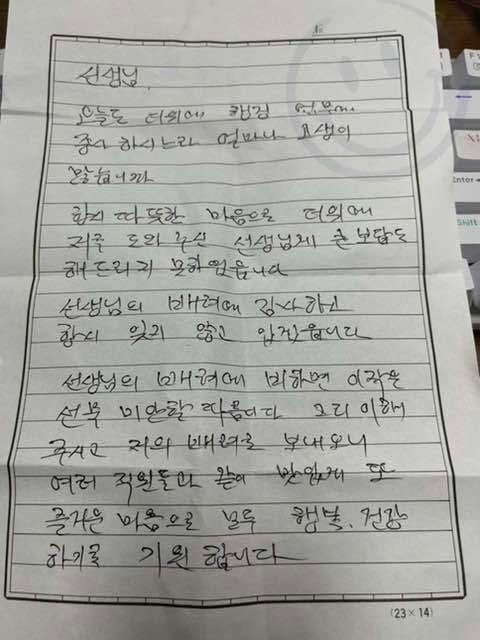 선생님.
오늘도 더위에 현장 업무에
종사 하시느라 얼마나 고생이
많습니까
항시 따뜻한 마음으로 더위에
저를 도와 주신 선생님께 큰 보답도
해드리지 못하였읍니다
선생님의 배려에 감사하고
항시 잊지 않고 있겠읍니다
선생님의 배려에 비하면 이작은
선물 미안할 따름니다 그리 이해
주시고 저의 배려로 보내오니
여러 직원들과 같이 맛있게 또
즐거운 마음으로 모두 행복, 건강
하기를 기원 합니다
(23×14)